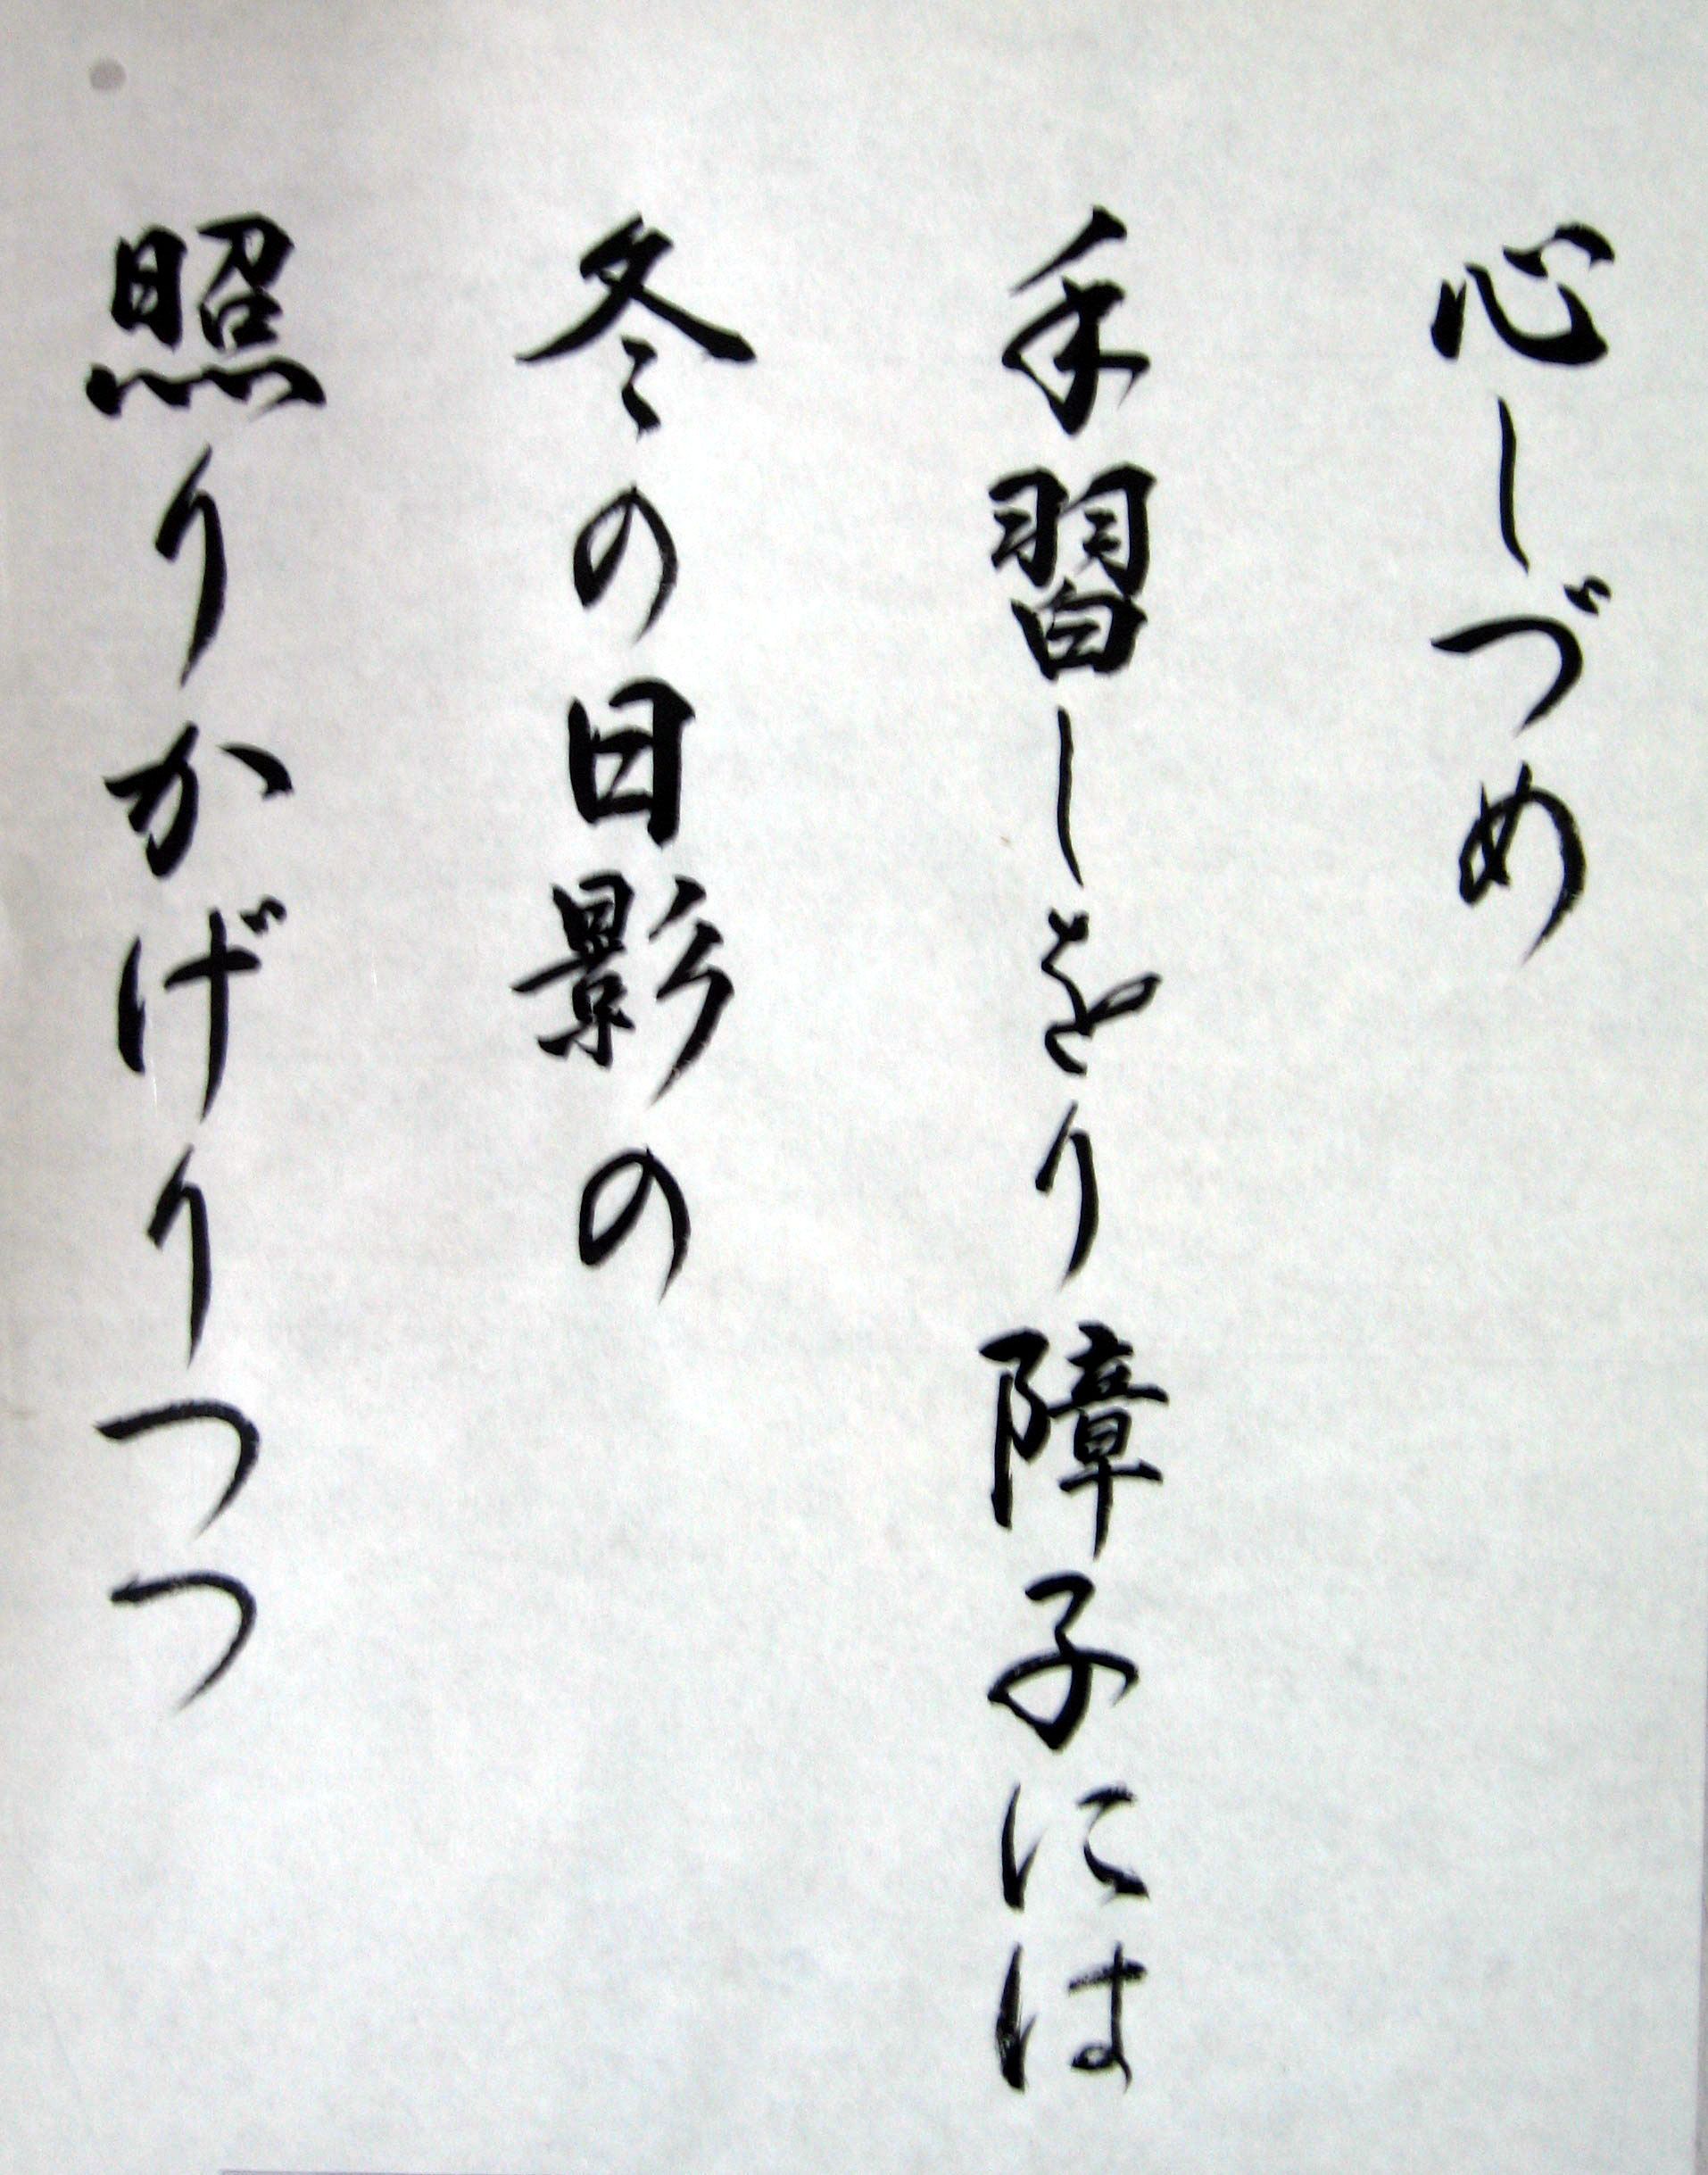 心しづめ
手習しをり障子には
冬の日影の
照りかげりつつ